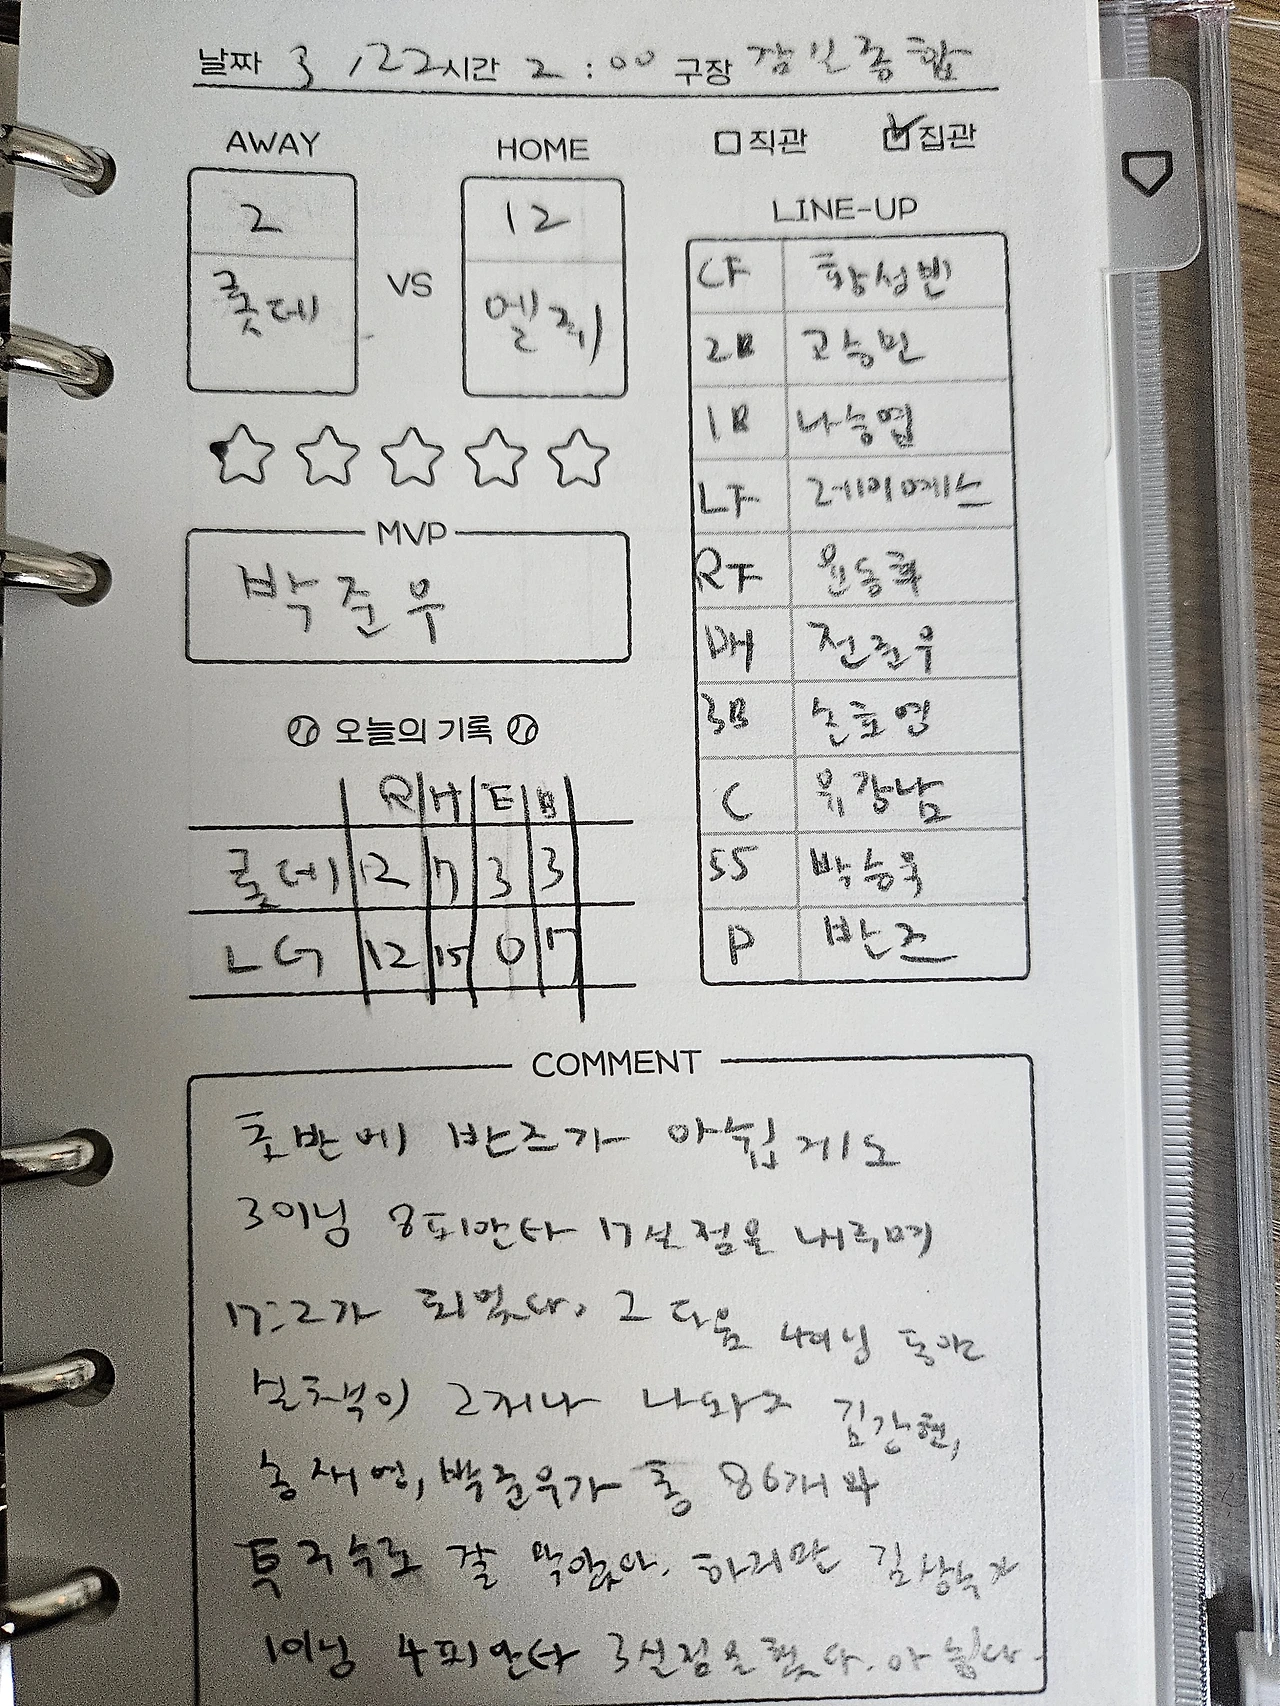 날짜 3 / 22 시간 2 : 00 구장 잠실종합
AWAY
HOME
□ 직관 ☑ 집관
2
롯데
VS
12
엘쥐
LINE-UP
CF 황성빈
2B 고승민
1B 나승엽
LF 레이예스
RF 윤동희
DH 전준우
3B 손호영
C 유강남
SS 박승욱
P 반즈
MVP
박준우
오늘의 기록
R H E B
롯데 2 7 3 3
LG 12 15 0 7
COMMENT
초반에 반즈가 아쉽게도
3이닝 8피안타 7실점을 내주며
7:2가 되었다. 그 다음 4이닝 동안
실책이 2개나 나와도
송재영, 박준우가 총 86개의
투구수로 잘 막았다. 하지만 김상수가
1이닝 4피안타 3실점을 했다. 아쉽다.